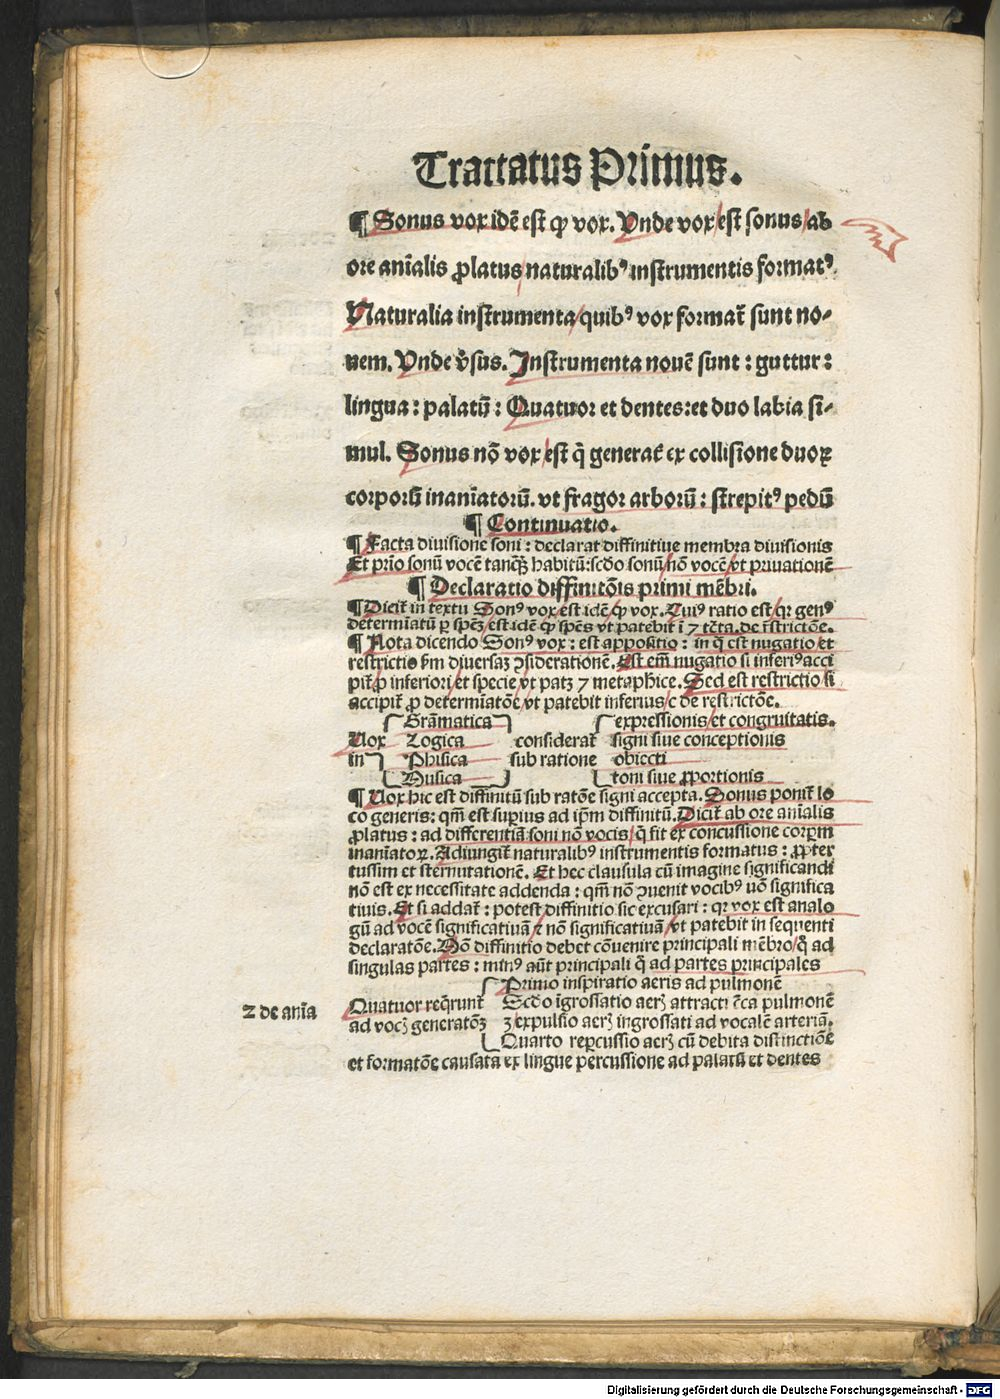 Tractatus Primus.
¶ Sonus vox idē est qđ vox. Vnde vox est sonus ab
ore aīalis ꝓlatus naturalibꝰ instrumentis formatꝰ.
Naturalia instrumenta quibꝰ vox format̃ sunt no⸗
uem. Vnde v̓sus. Instrumenta nouē sunt: guttur:
lingua: palatū: Quatuor et dentes: et duo labia si⸗
mul. Sonus nō vox est q̄ generat̃ ex collisione duoꝝ
corporū inanīatorū. vt fragor arborū: strepitꝰ pedū
¶ Continuatio.
¶ Facta diuisione soni: declarat diffinitiue membra diuisionis
Et prīo sonū vocē tanq̄ꝫ habitū: scđo sonū nō vocē vt priuationē
¶ Declaratio diffinitōis primi mēbri.
¶ Dicit̃ in textu Sonꝰ vox est idē qđ vox. Cuiꝰ ratio est qꝛ genꝰ
determīatū ꝑ spēꝫ est idē qđ spēs vt patebit ī 7 tc̄ta. de r̄strictōe.
¶ Nota dicendo Sonꝰ vox: est appositio: in q̄ est nugatio et
restrictio ẜm diuersaꝫ ↄsiderationē. Est em̄ nugatio si inferiꝰ acci
pit̃ ꝓ inferiori et specie vt patꝫ 7 metaphice. Sed est restrictio si
accipit̃ ꝓ determīatōe vt patebit inferius c̄ de restrictōe.
Vox in
Grāmatica
Logica
Phisica
Musica
considerat̃ sub ratione
expressionis et congruitatis.
signi siue conceptionis
obiecti
toni siue ꝓportionis
¶ Vox hic est diffinitū sub ratōe signi accepta. Sonus ponit̃ lo
co generis: qm̄ est suꝑius ad ip̄m diffinitū. Dicit̃ ab ore anīalis
ꝓlatus: ad differentiā soni nō vocis q̄ fit ex concussione corꝑm
inanīatoꝝ. Adiungit̃ naturalibꝰ instrumentis formatus: ꝓpter
tussim et sternutationē. Et hec clausula cū imagine significandi
nō est ex necessitate addenda: qm̄ nō ↄuenit vocibꝰ nō significa
tiuis. Et si addat̃: potest diffinitio sic excusari: qꝛ vox est analo
gū ad vocē significatiuā ⁊ nō significatiuā vt patebit in sequenti
declaratōe. Mō diffinitio debet cōuenire principali mēbro q̄ ad
singulas partes: minꝰ aūt principali q̄ ad partes principales
2 de aīa
Quatuor reqͥrunt̃
ad vocꝫ generatōꝫ
Primo inspiratio aeris ad pulmonē
Scđo īgrossatio aerꝫ attracti c̄ca pulmonē
3 expulsio aerꝫ ingrossati ad vocalē arteriā.
Quarto reꝑcussio aerꝫ cū debita distinctiōe
et formatōe causata ex lingue percussione ad palatū et dentes
Digitalisierung gefördert durch die Deutsche Forschungsgemeinschaft - DFG